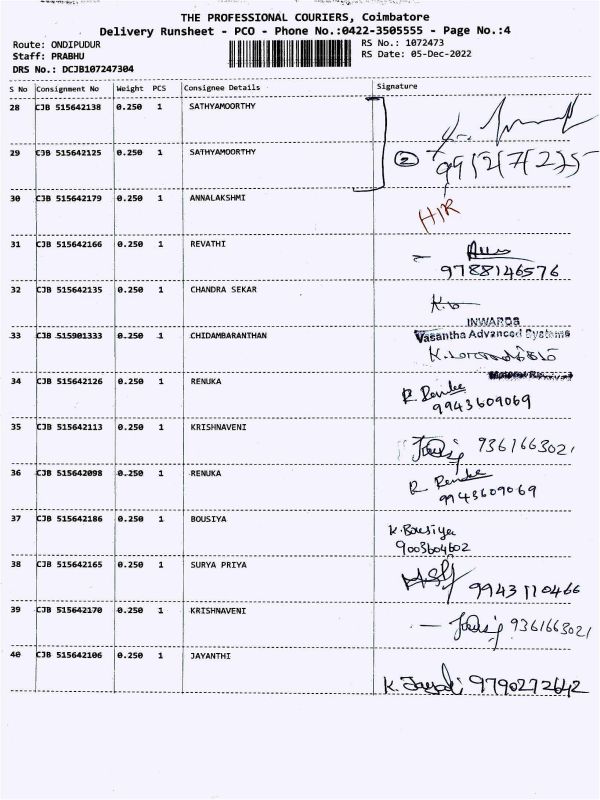 THE PROFESSIONAL COURIERS, Coimbatore
Delivery Runsheet - PCO - Phone No.:0422-3505555 - Page No.:4
Route: ONDIPUDUR
Staff: PRABHU
DRS No.: DCJB107247304
RS No.: 1072473
RS Date: 05-Dec-2022
S No Consignment No Weight PCS Consignee Details Signature
28 CJB 515642138 0.250 1 SATHYAMOORTHY
29 CJB 515642125 0.250 1 SATHYAMOORTHY
2
30 CJB 515642179 0.250 1 ANNALAKSHMI
31 CJB 515642166 0.250 1 REVATHI
9788146576
32 CJB 515642135 0.250 1 CHANDRA SEKAR
33 CJB 515901333 0.250 1 CHIDAMBARANTHAN
INWARDS
Vasantha Advanced Systems
34 CJB 515642126 0.250 1 RENUKA
9943609069
35 CJB 515642113 0.250 1 KRISHNAVENI
9361663021
36 CJB 515642098 0.250 1 RENUKA
9943609069
37 CJB 515642186 0.250 1 BOUSIYA
K. Bousiya
9003604602
38 CJB 515642165 0.250 1 SURYA PRIYA
9943110466
39 CJB 515642170 0.250 1 KRISHNAVENI
9361663021
40 CJB 515642106 0.250 1 JAYANTHI
9790272642